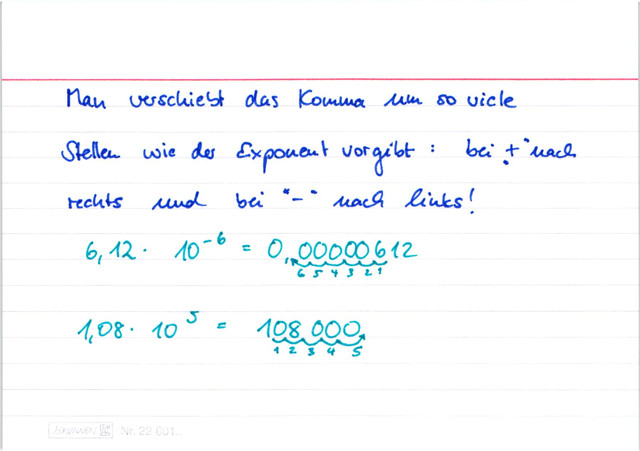 Man verschiebt das Komma um so viele
Stellen wie der Exponent vorgibt : bei "+" nach
rechts und bei "-" nach links!
6,12 · 10⁻⁶ = 0,00000612
6 5 4 3 2 1
1,08 · 10⁵ = 108.000,
1 2 3 4 5
BRUNNEN Nr. 22 601...